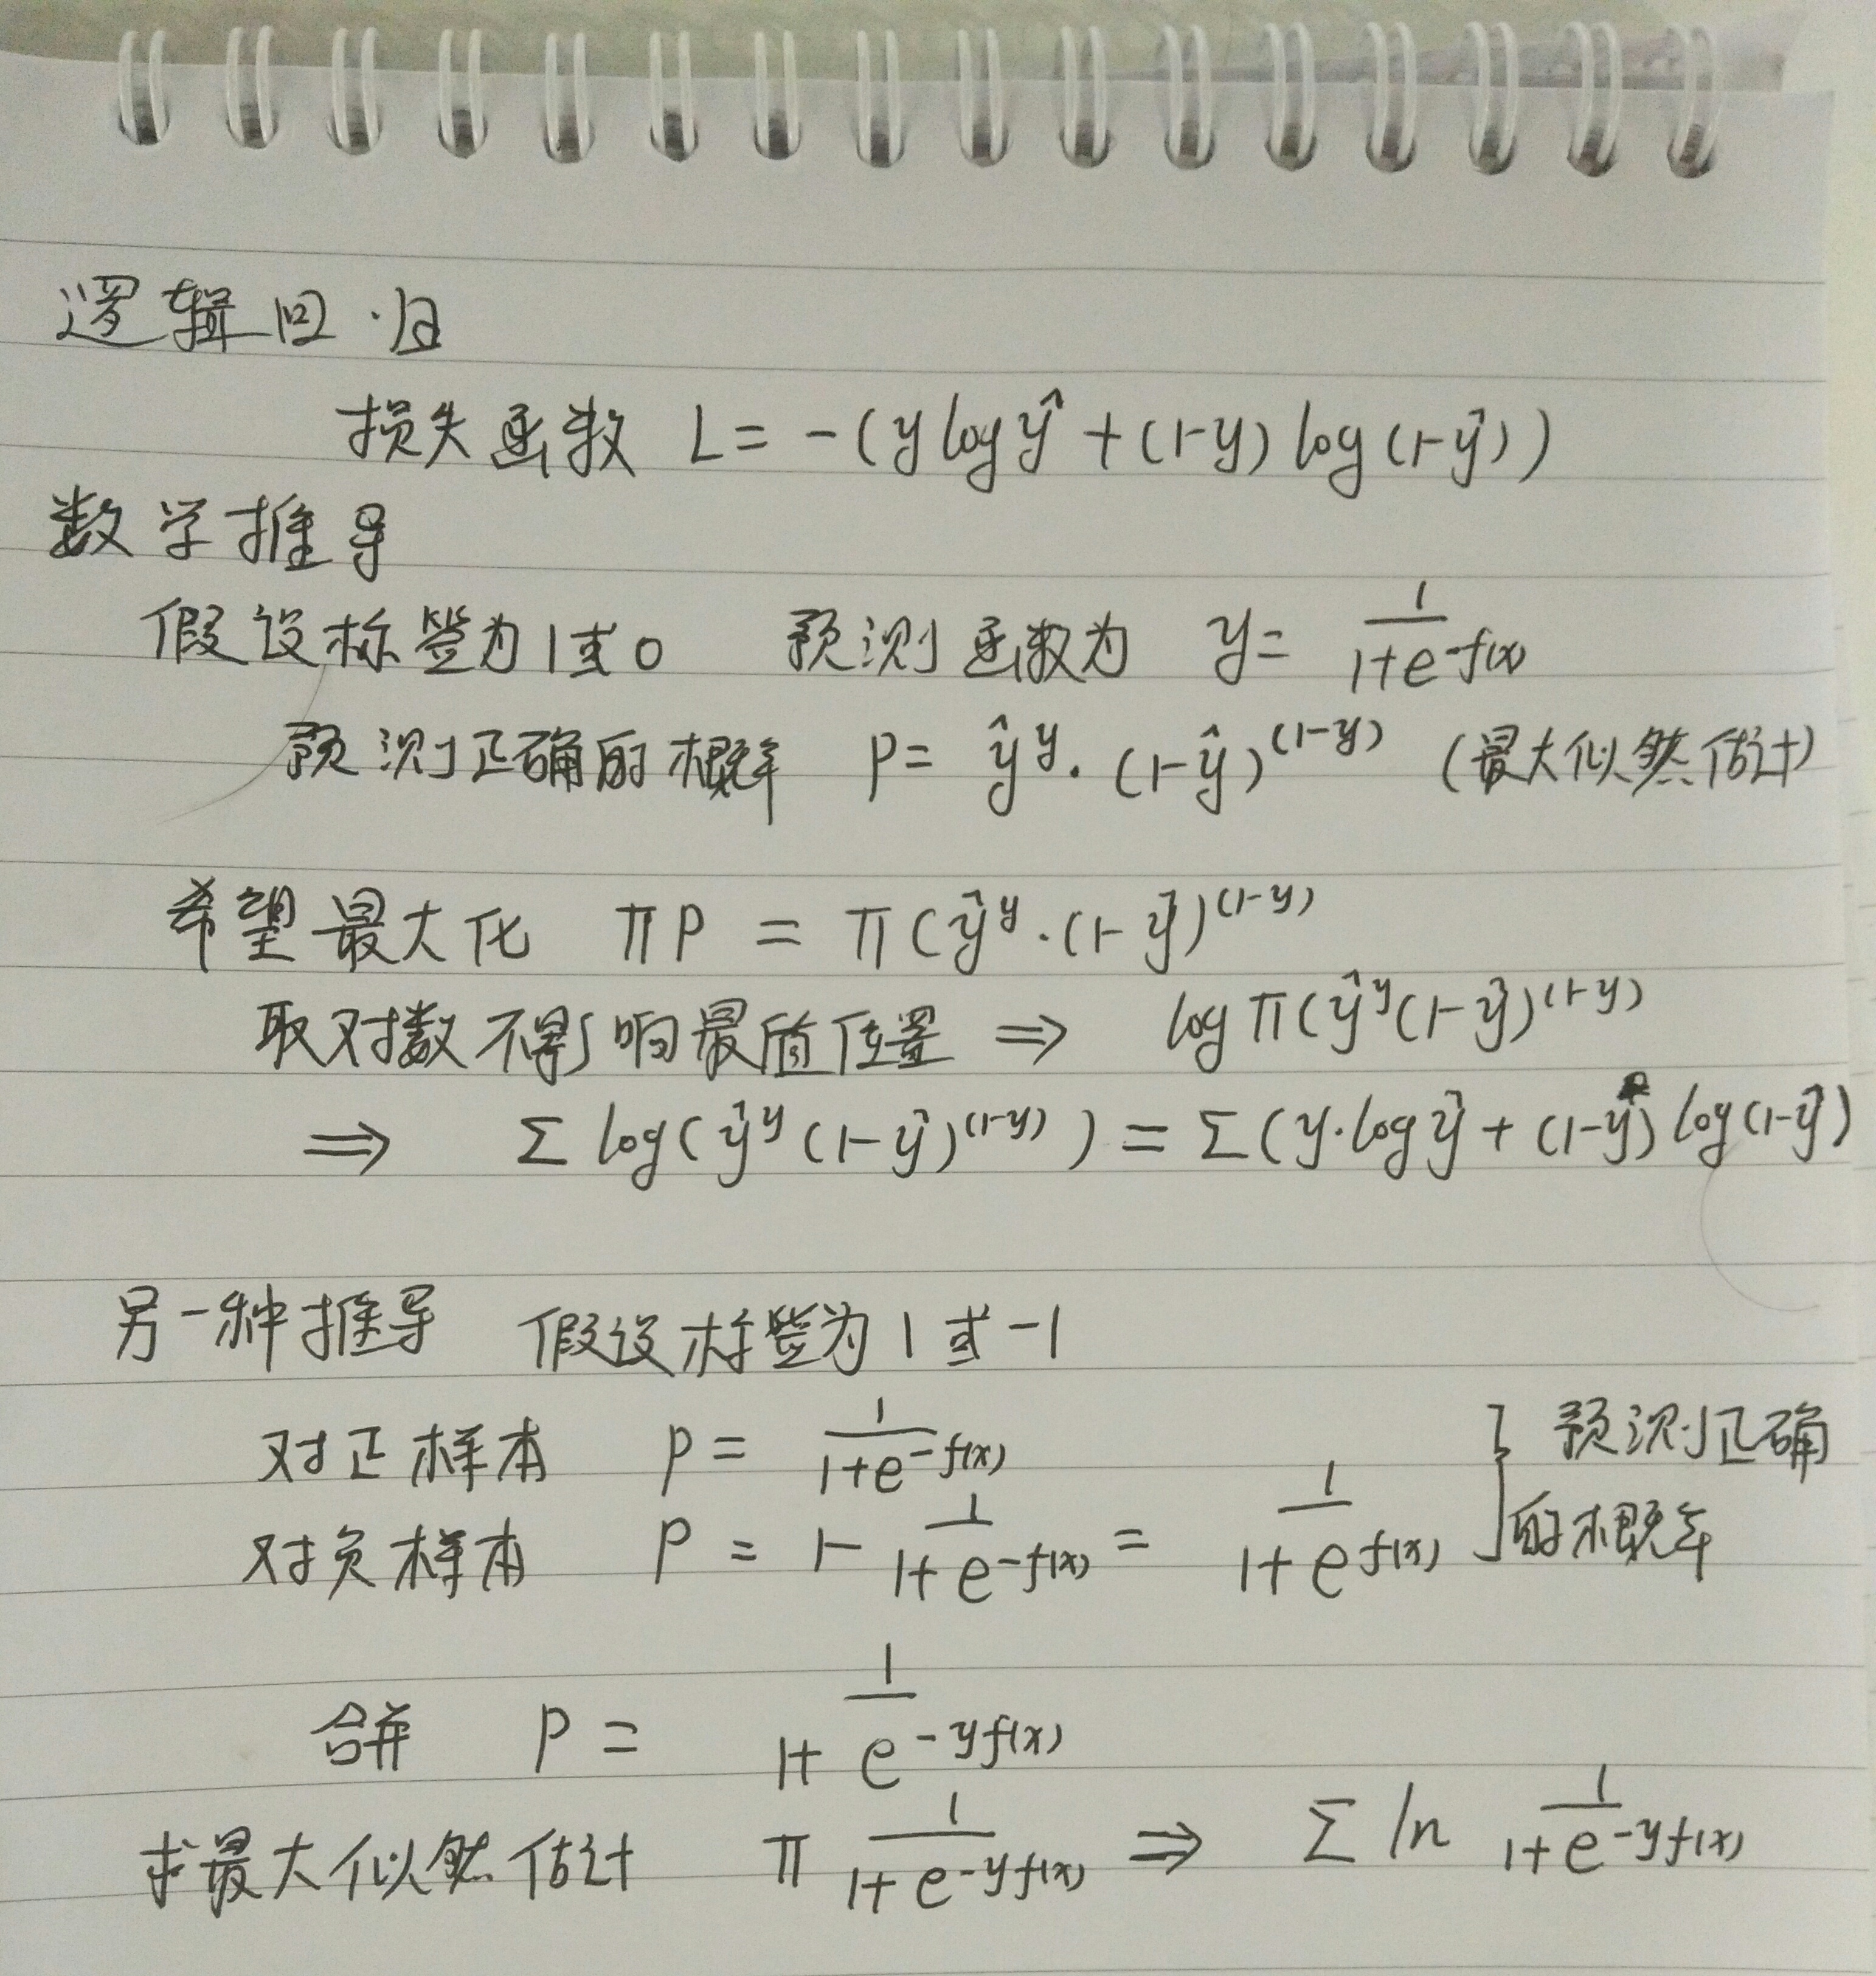 逻辑回归
损失函数 L = -(y log ŷ + (1-y) log (1-ŷ))
数学推导
假设标签为1或0 预测函数为 y = 1/(1+e^-f(x))
预测正确的概率 P = ŷ^y · (1-ŷ)^(1-y) (最大似然估计)
希望最大化 π P = π (ŷ^y · (1-ŷ)^(1-y)
取对数不影响最值位置 ⇒ log π (ŷ^y (1-ŷ)^(1-y)
⇒ Σ log(ŷ^y (1-ŷ)^(1-y)) = Σ (y·log ŷ + (1-y) log (1-ŷ)
另一种推导 假设标签为 1 或 -1
对正样本 P = 1/(1+e^-f(x))
对负样本 P = 1- 1/(1+e^-f(x)) = 1/(1+e^f(x))
} 预测正确
的概率
合并 P = 1/(1+e^-yf(x))
求最大似然估计 π 1/(1+e^-yf(x)) ⇒ Σ ln 1/(1+e^-yf(x))